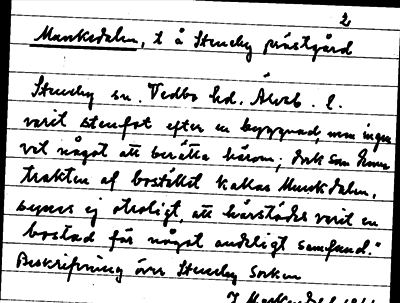 2
Munkedalen, t å Steneby prästgård
Steneby sn. Vedbo hd. Älvsb. l.
varit stenfot efter en byggnad, men ingen
vet något att berätta härom; dock som denna
trakten af bostället kallas Munkdalen,
synes ej otroligt, att härstädes varit en
bostad för något andeligt samfund."
Beskrifning över Steneby socken